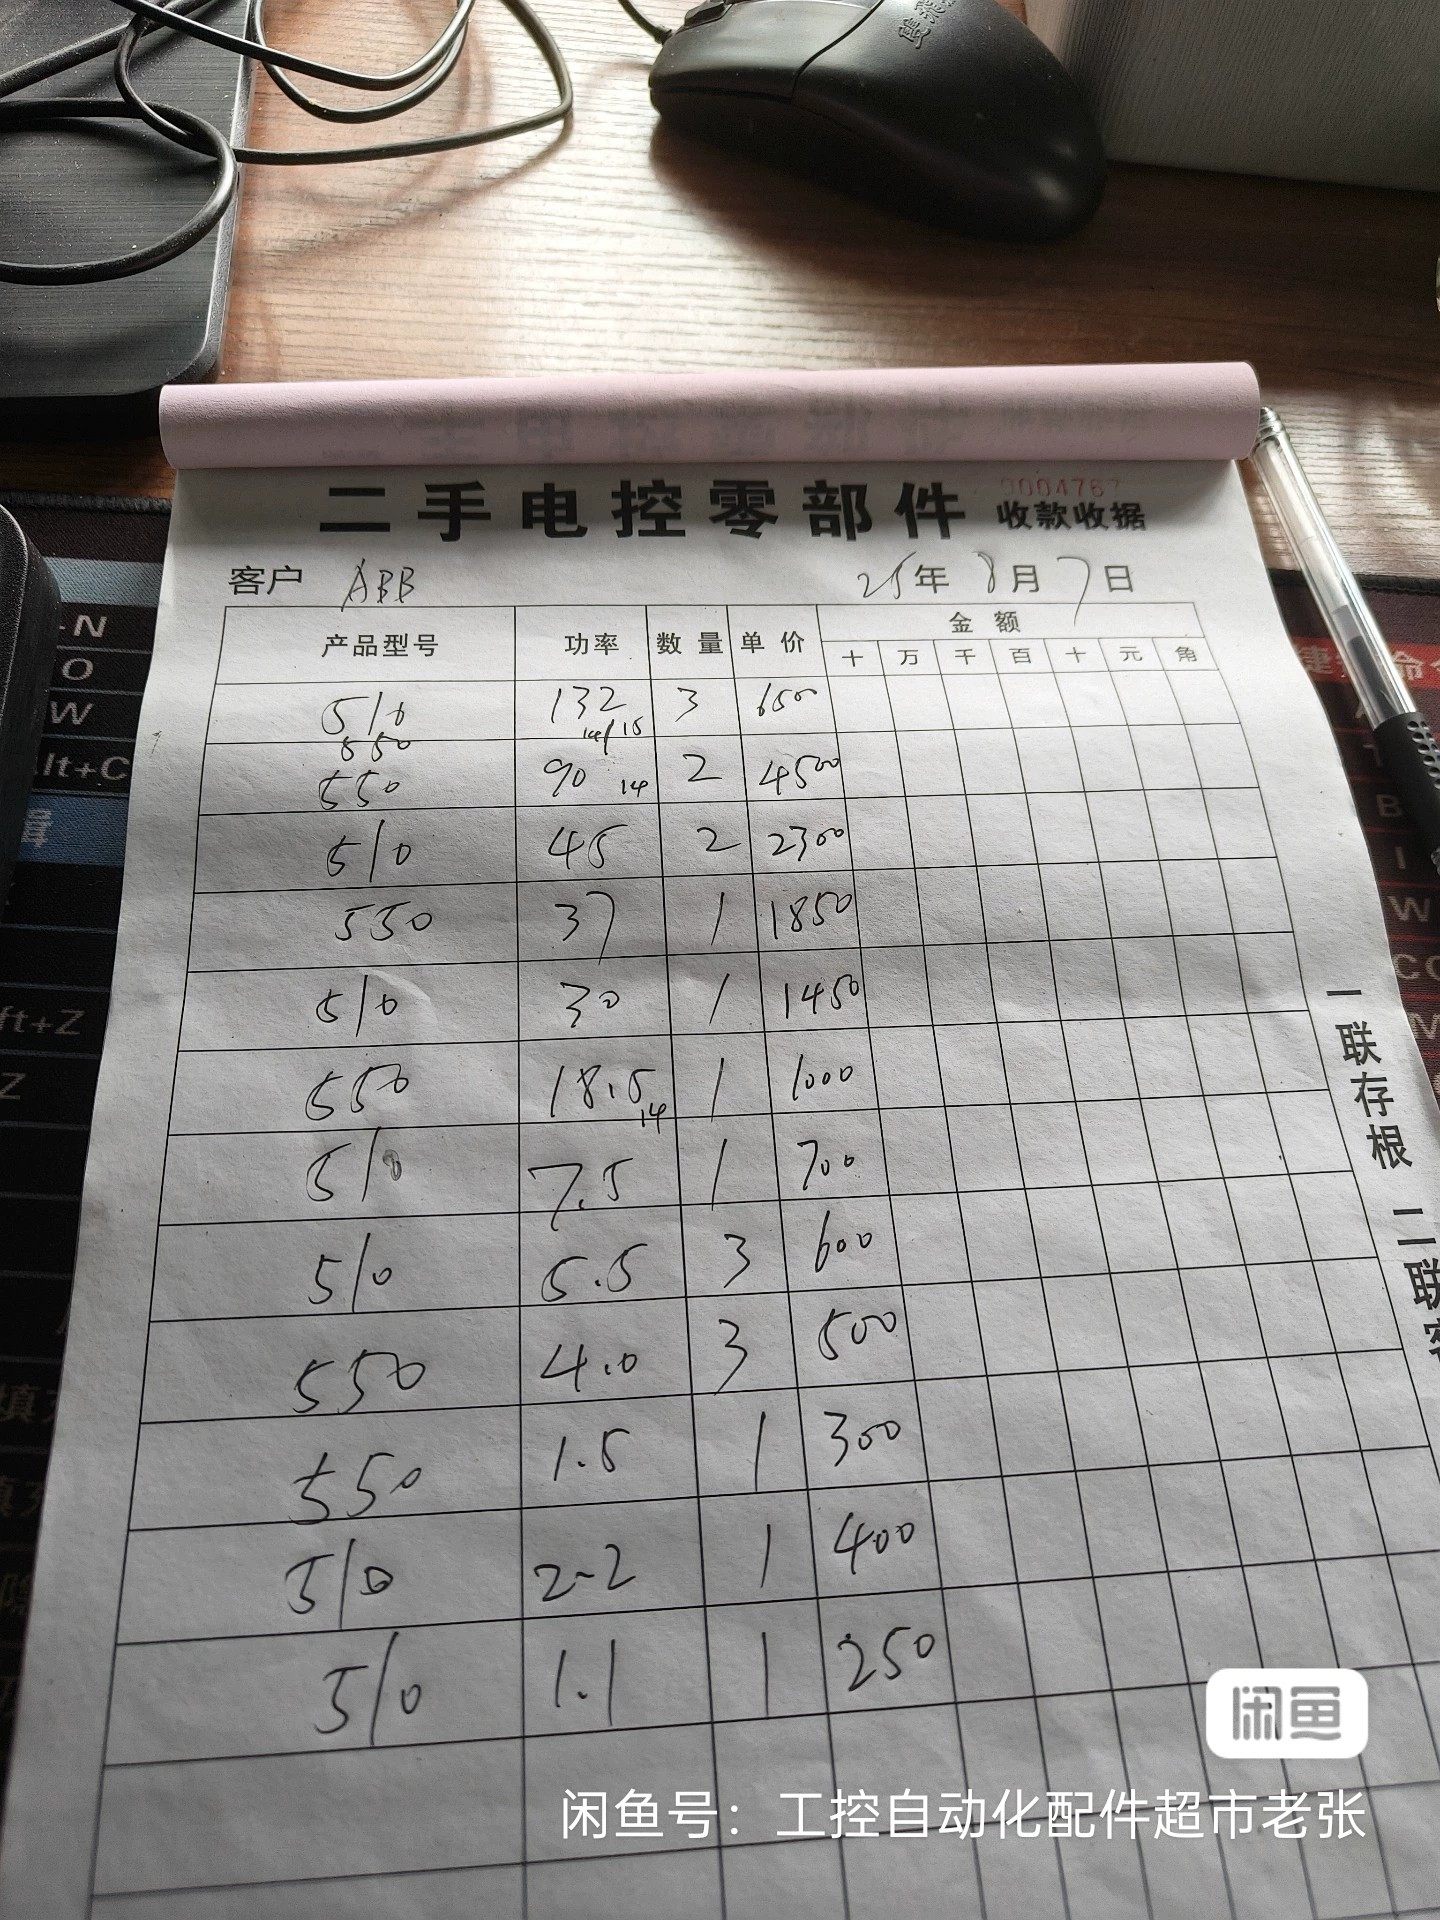 二手电控零部件 收款收据
0004767
客户 ABB 25年 8月 7日
产品型号 功率 数量 单价 金额
十 万 千 百 十 元 角
510 132 3 6500
550 14/15
550 90 14 2 4500
510 45 2 2300
550 37 1 1850
510 30 1 1450
550 18.5 14 1 1000
510 7.5 1 700
510 5.5 3 600
550 4.0 3 500
550 1.5 1 300
510 2.2 1 400
510 1.1 1 250
一联存根 二联客
-N
O
W
lt+C
ft+Z
Z
闲鱼
闲鱼号：工控自动化配件超市老张